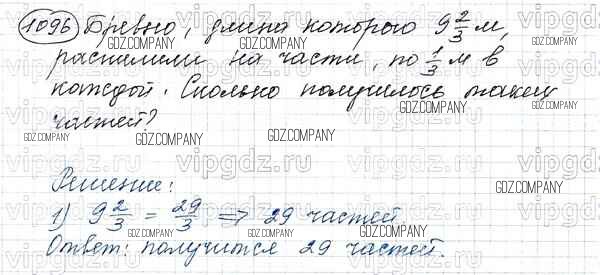 1096 Бревно, длина которого 9 2/3 м,
распилили на части, по 1/3 м в
каждой. Сколько получилось таких
частей?
Решение:
1) 9 2/3 = 29/3 => 29 частей.
Ответ: получится 29 частей.
GDZ.COMPANY
vipgdz.ru